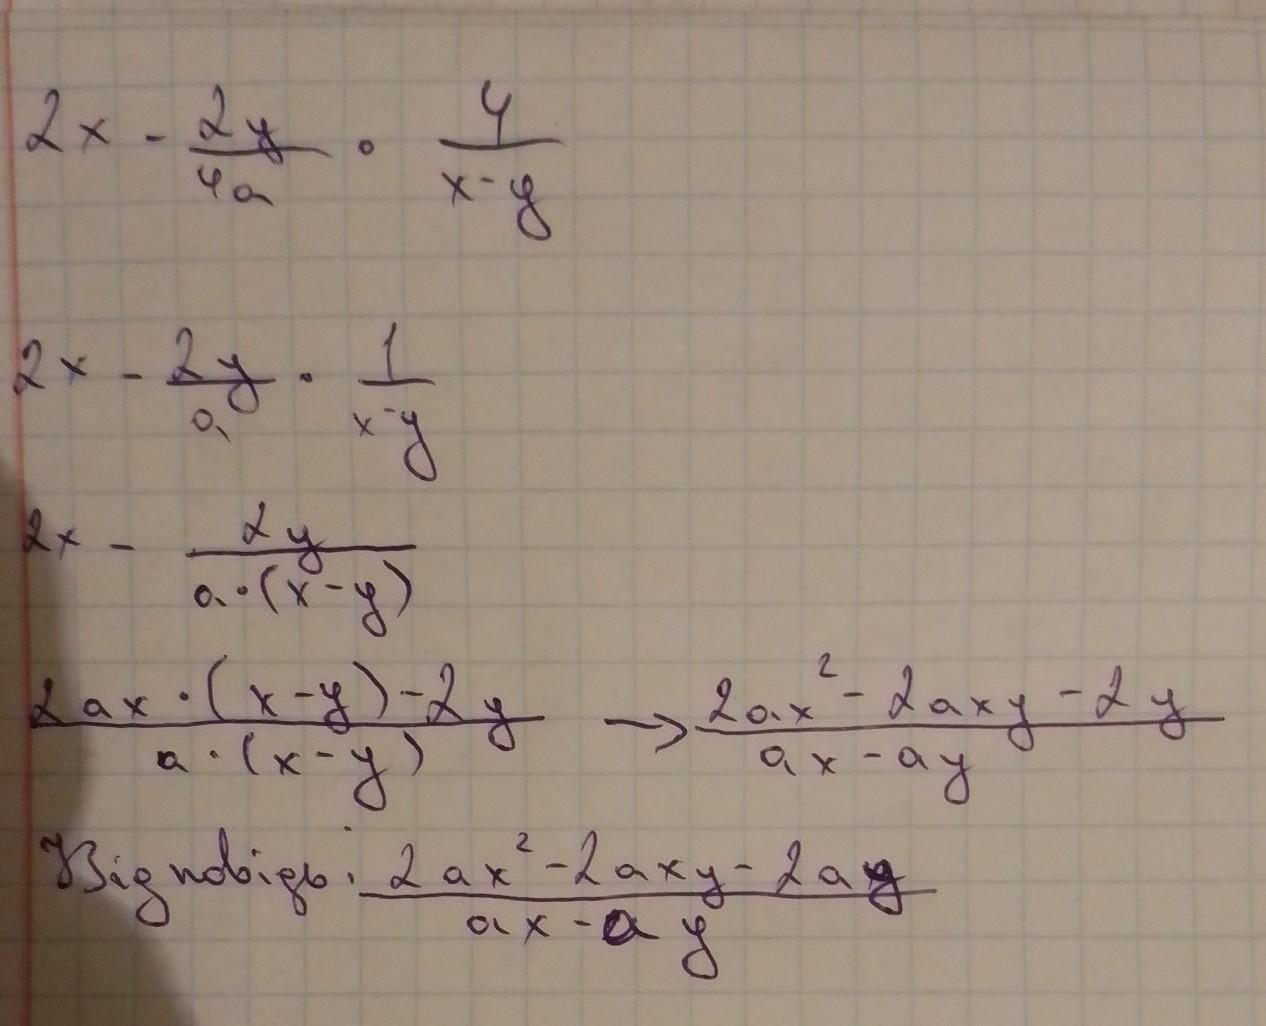 2x - 2y/4a · 4/x-y
2x - 2y/a · 1/x-y
2x - 2y/a·(x-y)
2ax·(x-y)-2y/a·(x-y) → 2ax²-2axy-2y/ax-ay
Відповідь: 2ax²-2axy-2ay/ax-ay